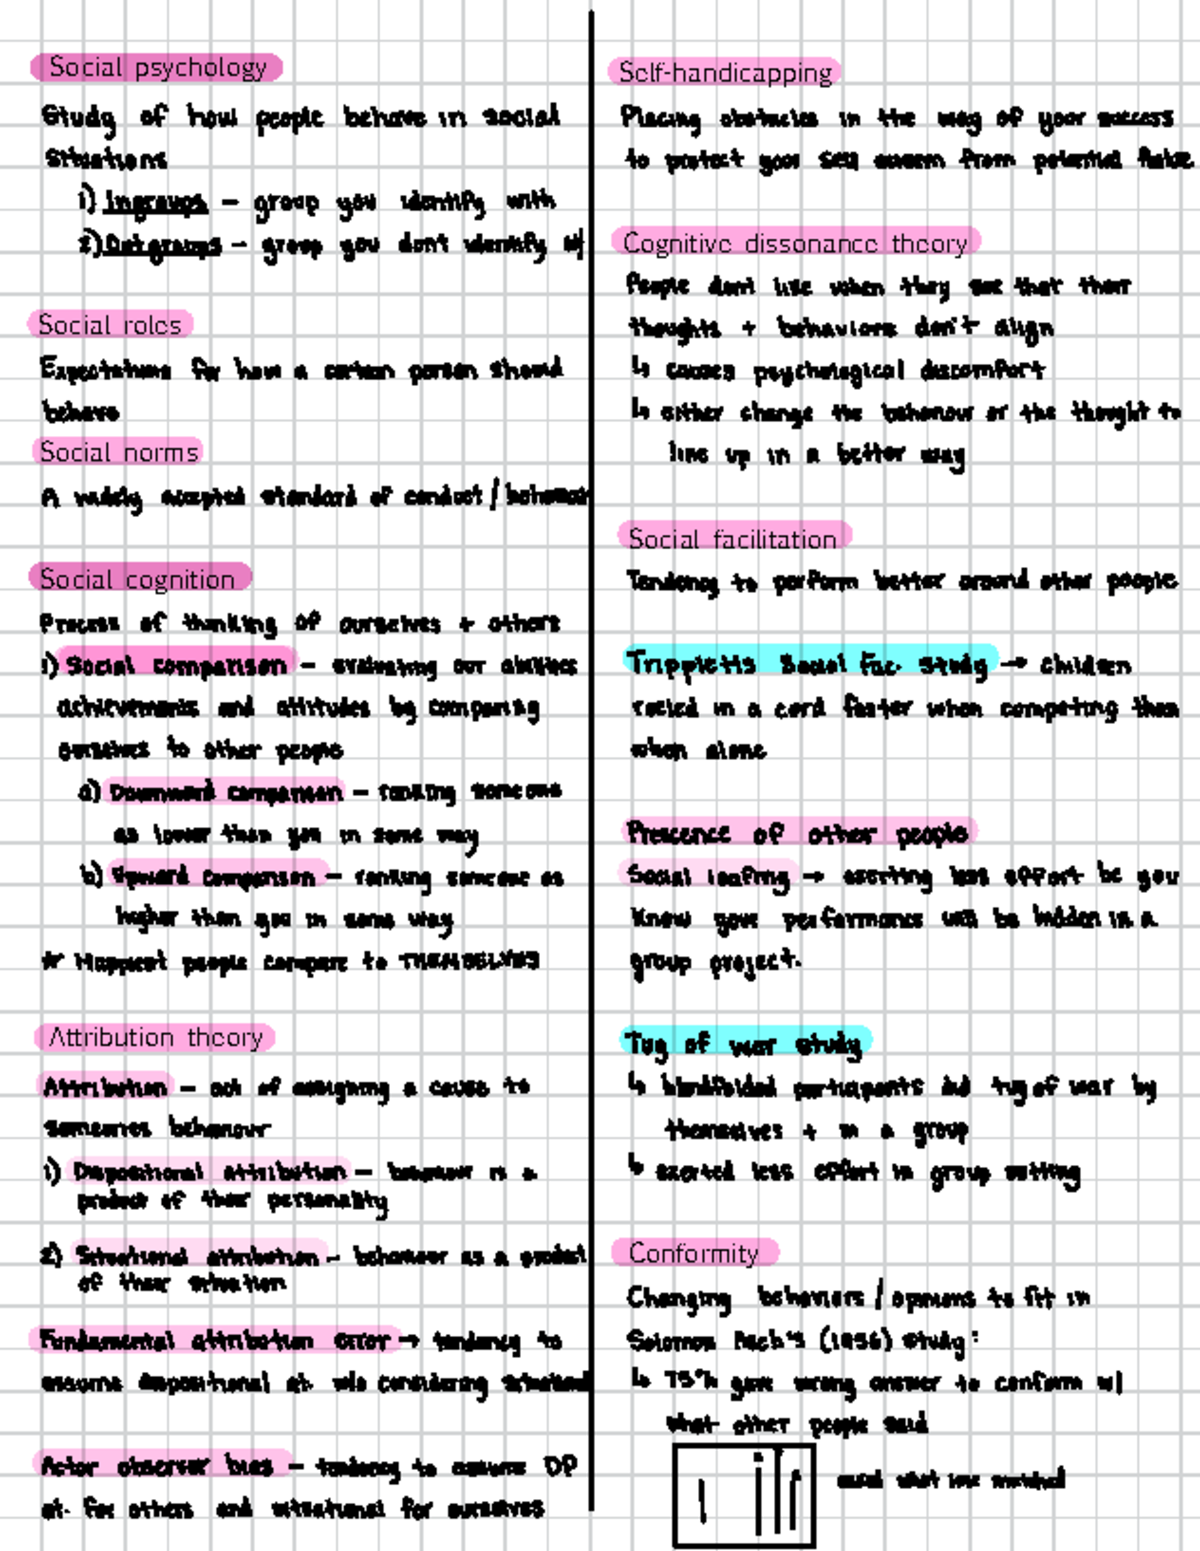 Social psychology
Study of how people behave in social
situations
1) Ingroups – group you identify with
2) Outgroups – group you don't identify w/
Social roles
Expectations for how a certain person should
behave
Social norms
A widely accepted standard of conduct / behaviour
Social cognition
Process of thinking of ourselves + others
1) Social comparison – evaluating our abilities
achievements and attitudes by comparing
ourselves to other people
a) Downward comparison – ranking someone
as lower than you in some way
b) Upward comparison – ranking someone as
higher than you in some way
* Happiest people compare to THEMSELVES
Attribution theory
Attribution – act of assigning a cause to
someones behaviour
1) Dispositional attribution – behaviour is a
product of their personality
2) Situational attribution – behaviour as a product
of their situation
Fundamental attribution error → tendency to
assume dispositional at. w/o considering situational
Actor observer bias – tendency to assume DP
at. for others and situational for ourselves
Self-handicapping
Placing obstacles in the way of your success
to protect your self esteem from potential
Cognitive dissonance theory
People dont like when they see that their
thoughts + behaviors don't align
↳ causes psychological discomfort
↳ either change the behaviour or the thought to
line up in a better way
Social facilitation
Tendency to perform better around other people
Tripplett's Social Fac. study → children
reeled in a cord faster when competing than
when alone
Prescence of other people
Social loafing → exerting less effort bc you
know your performance will be hidden in a
group project.
Tug of war study
↳ blindfolded participants did tug of war by
themselves + in a group
↳ exerted less effort in group setting
Conformity
Changing behaviors / opinions to fit in
Solomon (1956) study:
↳ 75% gave wrong answer to conform w/
what other people said
asked what line matched